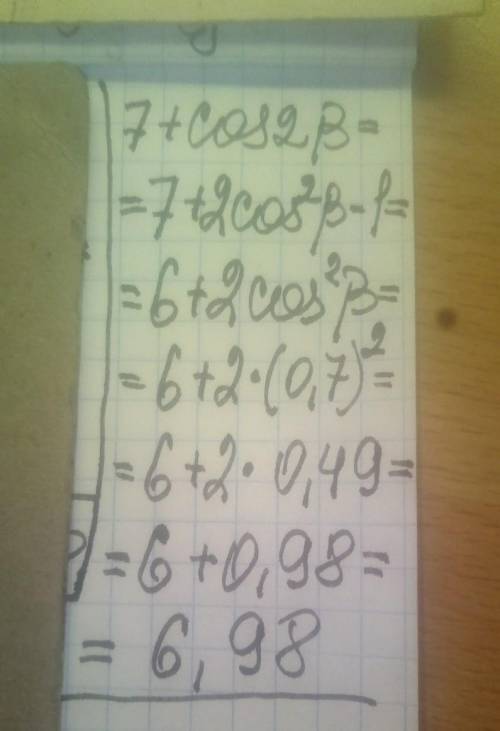 7+cos2β=
=7+2cos²β-1=
=6+2cos²β=
=6+2·(0,7)²=
=6+2·0,49=
=6+0,98=
=6,98